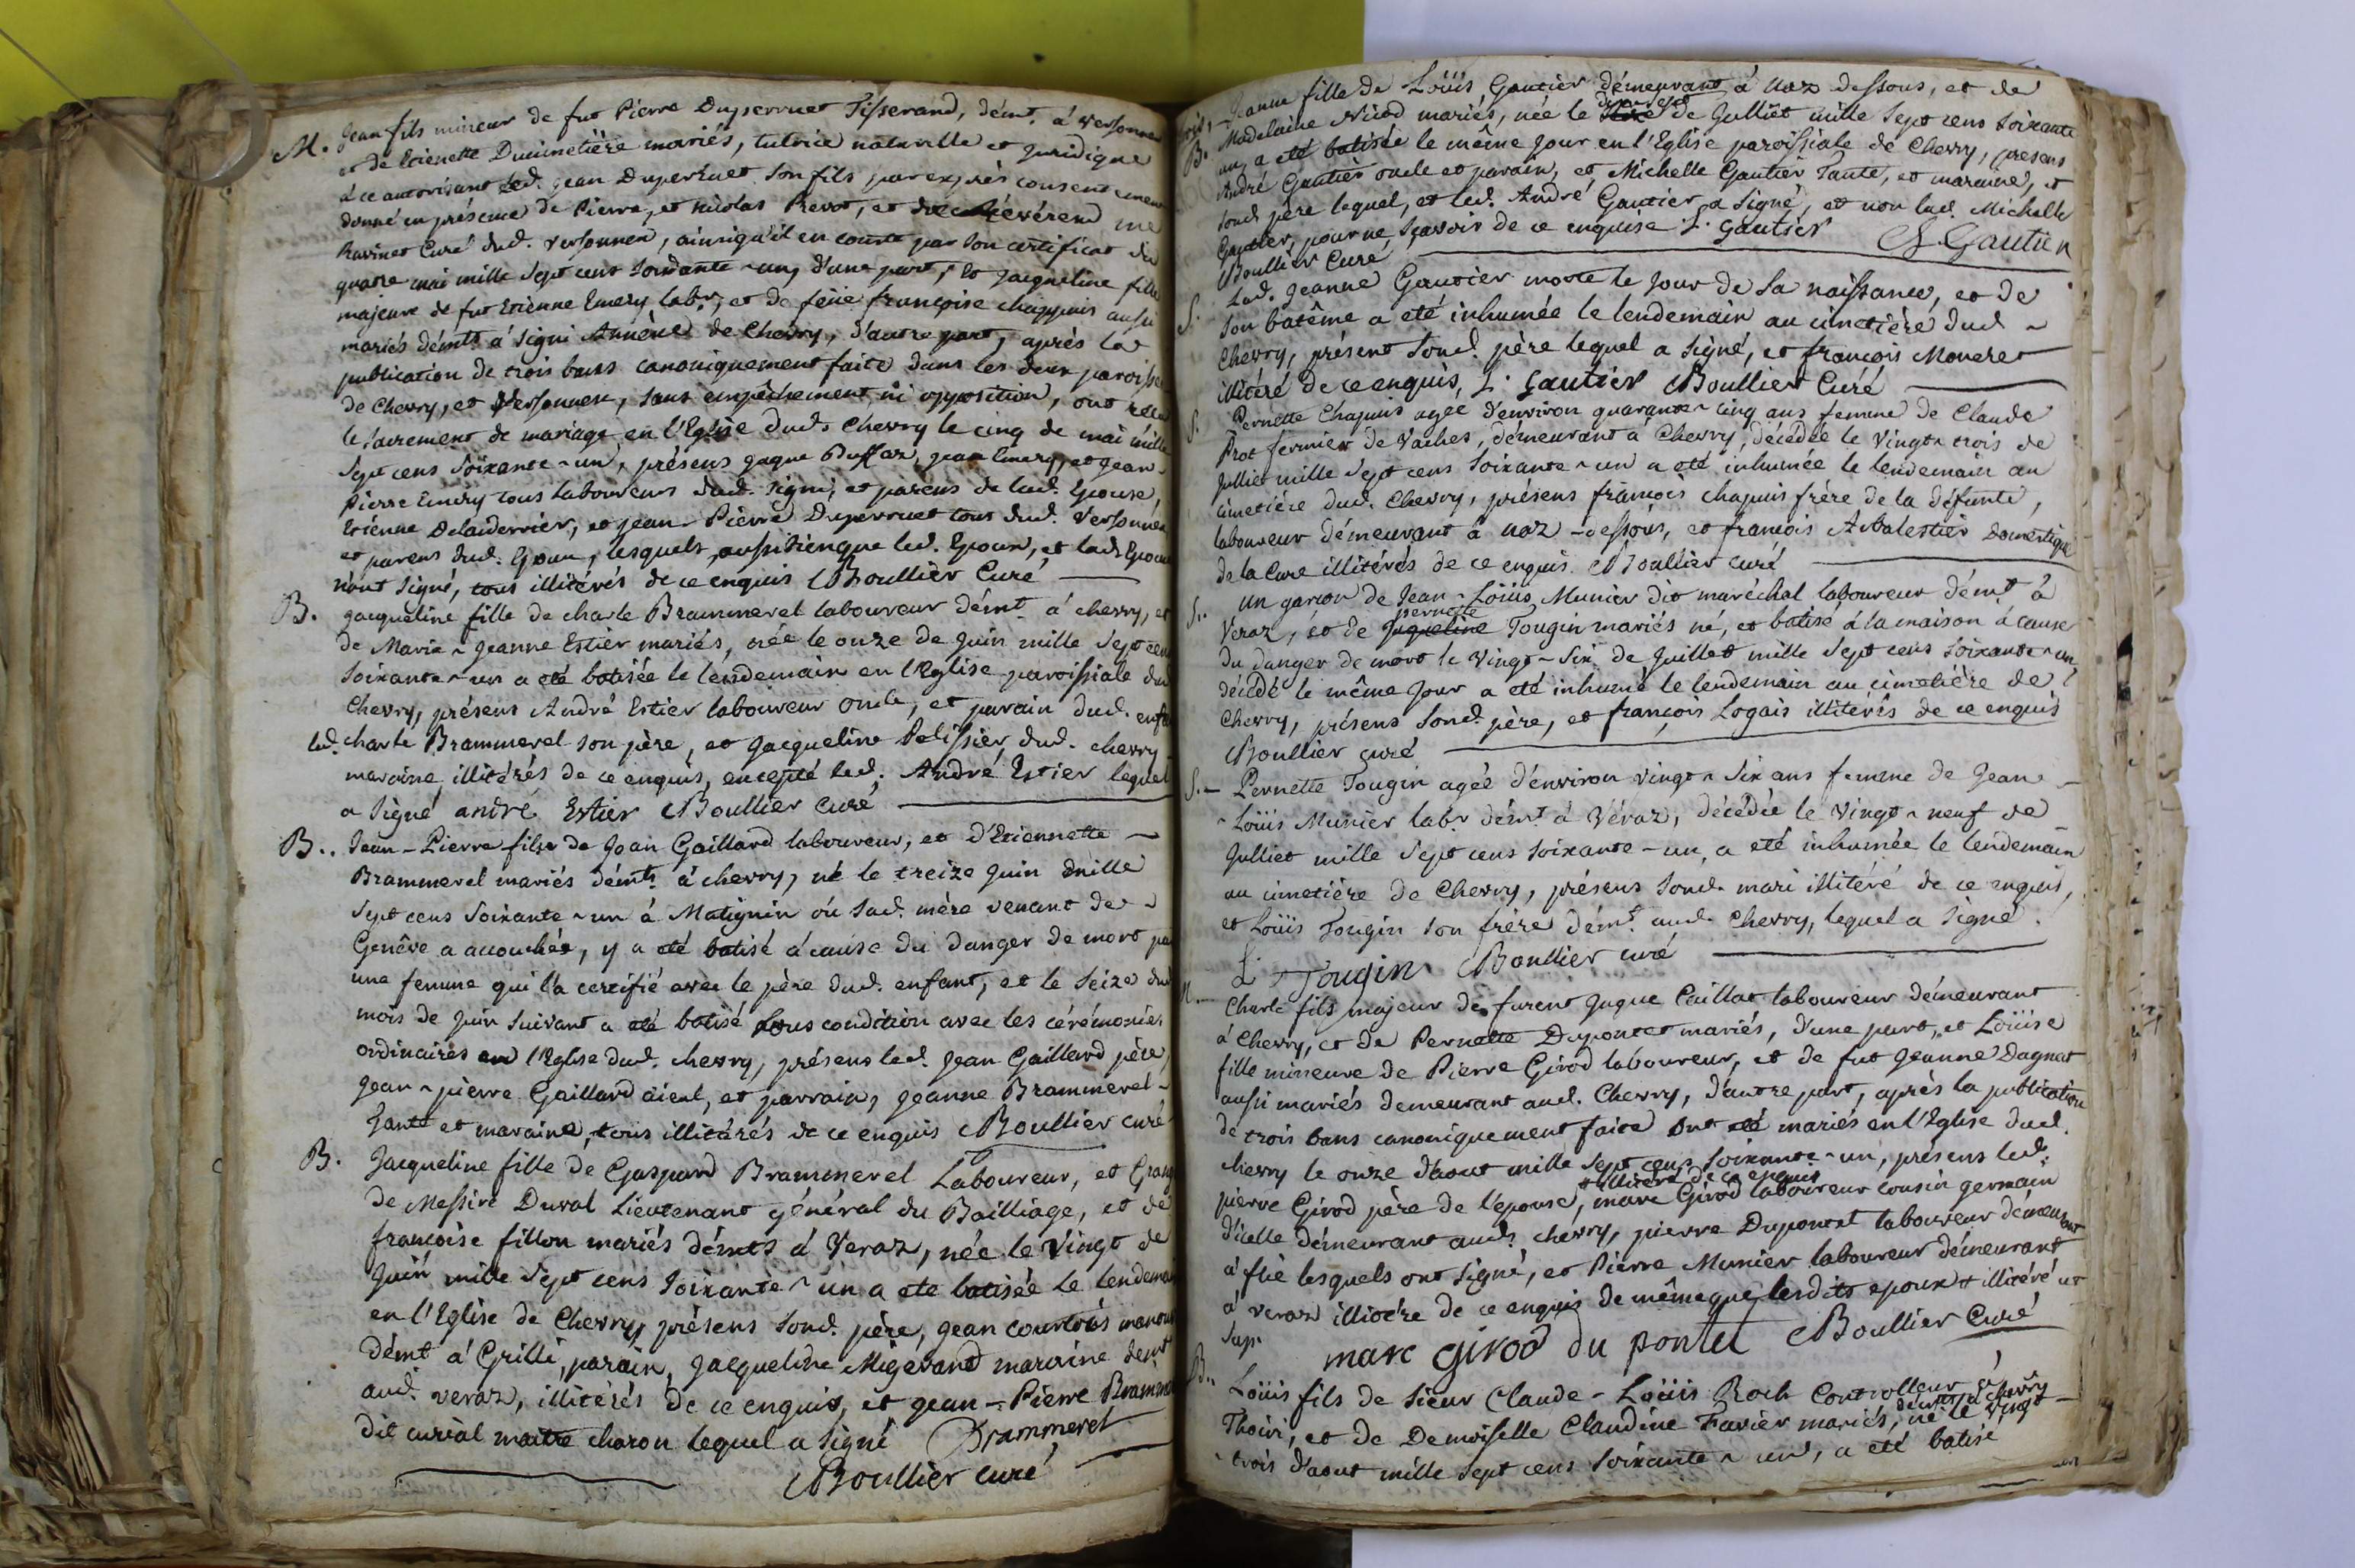 M. Jean fils mineur de fut Pierre Duperruet Tisserand, démt. à Versonnex
et de Etienette Ducimetière mariés, tutrice naturelle et juridique
à ce autorisant led. Jean Duperruet son fils par exprès consentement
donné en présence de Pierre, et Nicolas Prevot, et de Révérend me
Ravinet Curé dud. Versonnex, ainsiqu'il en conste par son certificat du
quatre mai mille sept cent soixante-un, d'une part, et Jacqueline fille
majeure de fut Etienne Emery labr., et de feüe françoise chappuis aussi
mariés démts. à Signi Annèxe de Chevry, d'autre part, après la
publication de trois bans canoniquement faite dans les deux paroisses
de Chevry, et Versonnex, sans empêchement ni opposition, ont reçu
le sacrement de mariage en l'Eglise dud. Chevry le cinq de mai mille
Sept cens soixante-un, présens Jaque Buffaz, Jean Emery, et Jean-
Pierre Emery tous laboureurs dud. Signi, et parens de lad. Epouse,
Etienne Delaiderrier, et Jean-Pierre Duperruet tous dud. Versonnex
et parens dud. Epoux, lesquels, aussibienque led. Epoux, et lad. Epouse
n'ont signé, tous illitérés de ce enquis Boullier Curé
B. Jacqueline fille de charle Brammerel laboureur démt. à chevry, et
de Marie-Jeanne Estier mariés, née le onze de Juin mille Sept cens
soixante-un a eté batisée le lendemain en l'Eglise paroissiale dud
Chevry, présens André Estier laboureur oncle, et parain dud. enfant
led. charle Brammerel son père, et Jacqueline Pelissier dud. chevry
maraine, illitérés de ce enquis, excepté led. André Estier lequel
a signé andré Estier Boullier Curé
B.. Jean-Pierre fils de Jean Gaillard laboureur, et d'Etiennette
Brammerel mariés démts. à chevry, né le treize Juin mille
Sept cens Soixante-un à Matignin où sad. mère venant de
Genêve a accouchée, y a eté batisé à cause du danger de mort par
une femme qui l'a certifié avec le père dud. enfant, et le seize dud
mois de Juin suivant a eté batisé sous condition avec les cérémonies
ordinaires en l'Eglise dud. chevry, présens led. Jean Gaillard père,
Jean-pierre Gaillard aïeul, et parrain, Jeanne Brammerel
tante et maraine, tous illitérés de ce enquis Boullier curé
B. Jacqueline fille de Gaspard Brammerel Laboureur, et Grang
de Messire Duval Lieutenant général du Bailliage, et de
françoise fillon mariés démts à Veraz, née le Vingt de
Juin mille Sept cens soixante-un a eté batisée le lendemain
en l'Eglise de Chevry, présens sond. père, Jean courtois manouv
démt à Grilli, parain, Jacqueline Migerand maraine démt
aud. veraz, illitérés de ce enquis, et Jean-Pierre Bramme
dit curial maitre charon lequel a signé Brammerel
Boullier curé
B. Jeanne fille de Loüis Gautier démeurant à Naz dessous, et de
Madelaine Nicod mariés, née le de Julliet mille Sept cens soixante
un, a eté batisée le même jour en l'Eglise paroissiale de Chevry, présens
André Gautier oncle et parain, et Michelle Gautier Tante, et maraine, et
sond. père lequel, et led. André Gautier a signé, et non lad. Michelle
Gautier, pour ne sçavoir de ce enquise L. Gautier A. Gautier
Boullier Curé
S. Lad. Jeanne Gautier morte le jour de sa naissance, et de
son batême a eté inhumée le lendemain au cimetière dud
Chevry, présent sond. père lequel a signé, et françois Moneret
illitéré de ce enquis, L. Gautier Boullier Curé
S. Pernette Chapuis agée d'environ quarante-cinq ans femme de Claude
Prot fermier de Vaches, démeurant à Chevry, décédée le Vingt-trois de
Julliet mille Sept cens Soixante-un a eté inhumée le lendemain au
cimetière dud. Chevry, présens françois chapuis frère de la défunte,
laboureur démeurant à Naz-dessous, et francois Arbalestier domestique
de la Cure illitérés de ce enquis. Boullier curé
S.. Un garcon de Jean-Loüis Munier dit maréchal laboureur démt. à
pernette
Veraz, et de Jaqueline Tougin mariés né, et batisé à la maison à cause
du danger de mort le Vingt-Six de Juillet mille Sept cens soixante-un,
décédé le même jour a eté inhumé le lendemain au cimetière de
Chevry, présens sond. père, et françois Logais illitérés de ce enquis
Boullier curé
S. Pernette Tougin agée d'environ vingt-Six ans femme de Jean
-Loüis Munier labr. démt. à Véraz, décédée le Vingt-neuf de
Julliet mille Sept cens soixante-un, a eté inhumée le lendemain
au cimetière de Chevry, présens sond. mari illitéré de ce enquis,
et Loüis Tougin son frère démt. aud. Chevry, lequel a signé.
L Tougin Boullier curé
M. Charle fils majeur de furent Jaque Caillat laboureur démeurant
à Chevry, et de Pernette Dupontet mariés, d'une part, et Loüise
fille mineure de Pierre Girod laboureur, et de fut Jeanne Dagnat
aussi mariés demeurant aud. Chevry, d'autre part, après la publication
de trois bans canoniquement faite ont eté mariés en l'Eglise dud.
chevry le onze d'aout mille Sept cens soixante-un, présens led.
+illitéré de ce enquis
pierre Girod père de l'épouse, marc Girod laboureur cousin germain
d'icelle démeurant aud. chevry, pierre Dupontet laboureur démeurant
à flié lesquels ont signé, et Pierre Munier laboureur démeurant
à veraz illitére de ce enquis de même que lesdits epoux + illitéré ut
sup. marc girod du pontet Boullier Curé
B.. Loüis fils de Sieur Claude-Loüis Roch Controlleur à
démts à chevry
Thoiri, et de Demoiselle Claudine Favier mariés, né le vingt-
trois d'aout mille Sept cens soixante-un, a eté batisé